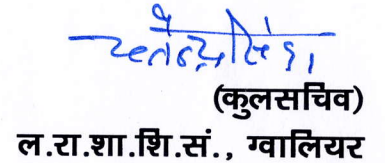 (कुलसचिव)
ल.रा.शा.शि.सं., ग्वालियर